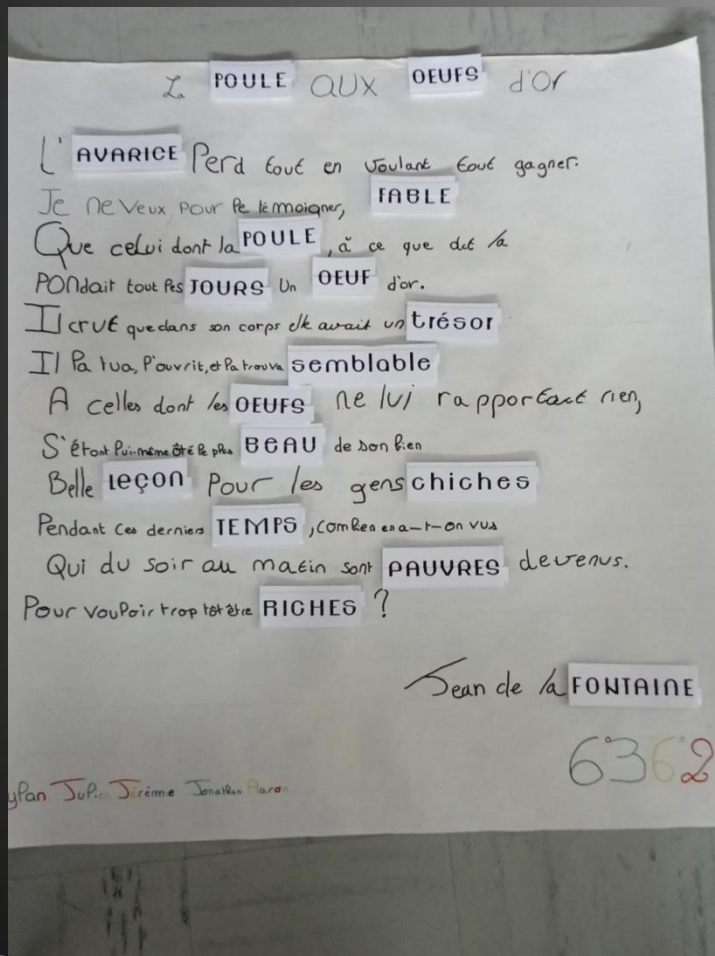 La POULE aux OEUFS d'Or
L'AVARICE Perd tout en voulant tout gagner.
Je ne veux pour le témoigner, FABLE
Que celui dont la POULE, à ce que dit la
PONdait tout les JOURS Un OEUF d'or.
Il crut que dans son corps elle avait un trésor
Il la tua, l'ouvrit, et la trouva semblable
A celles dont les OEUFS ne lui rapportait rien,
S'étant lui-même ôté le plus BEAU de son bien
Belle leçon Pour les gens chiches
Pendant ces derniers TEMPS, combien en a-t-on vus
Qui du soir au matin sont PAUVRES devenus.
Pour vouloir trop tôt être RICHES ?
Jean de la FONTAINE
6362
ylan Julien Jérémie Jonathan Aaron